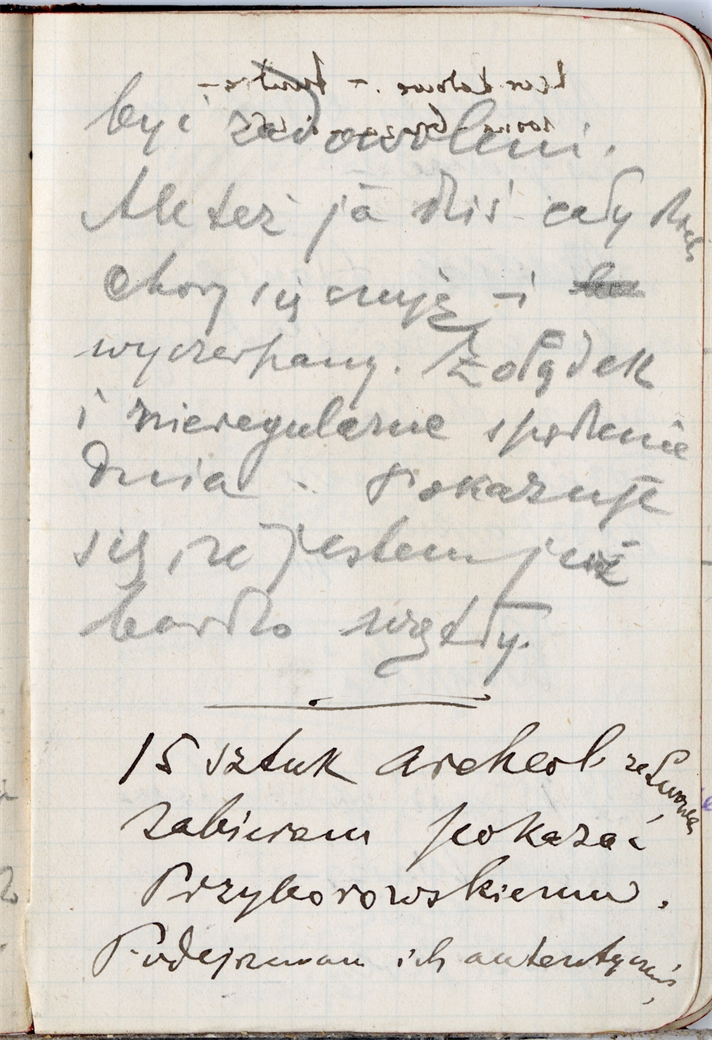 być zadowoleni.
Ale też ja dziś cały dzień
chory się czuję – i
wyczerpany. Żołądek
i nieregularne spędzenie
dnia. Pokazuje
się, że jestem już
bardzo zużyty.
15 sztuk archeol. ze Lwowa
zabieram pokazać
Przyborowskiemu.
Podejrzewam ich autentyczność,